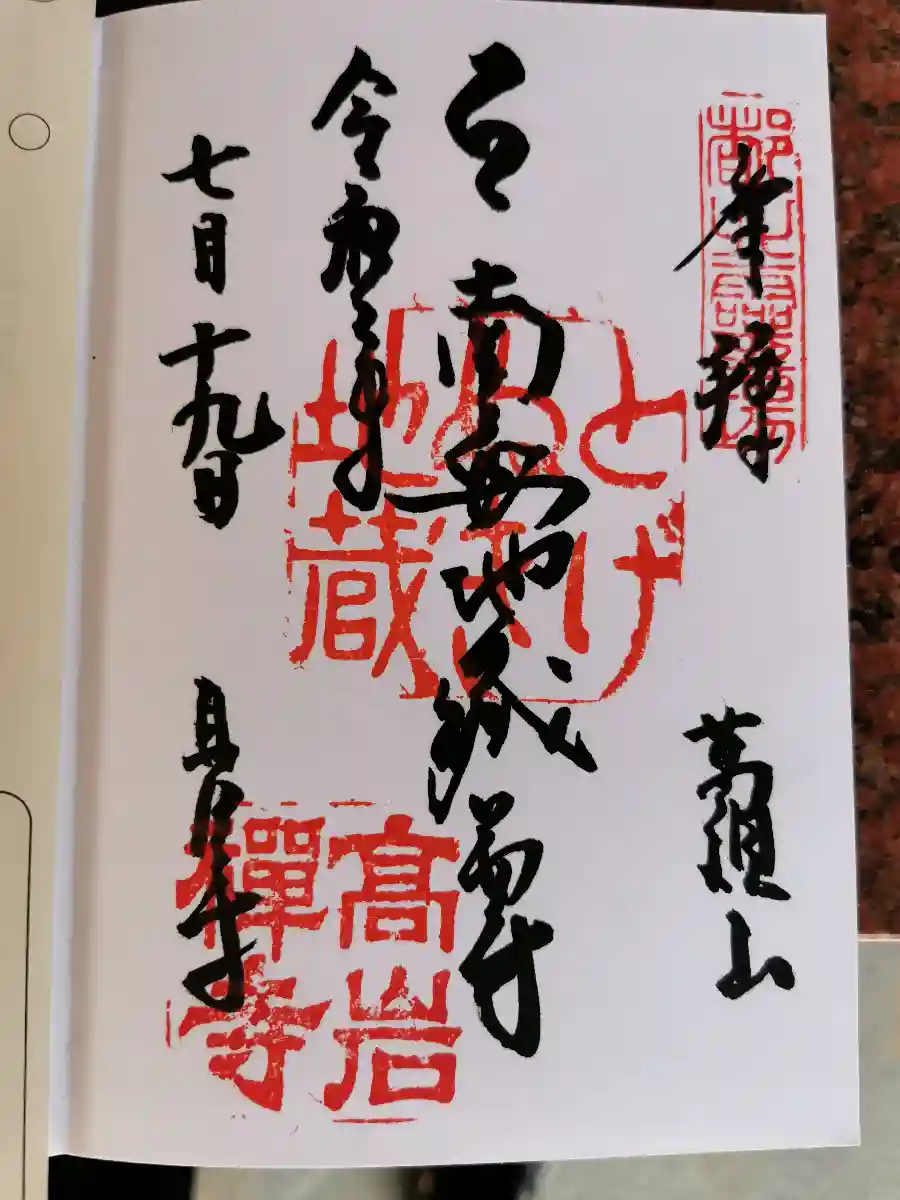 奉拝
萬頂山
南無地蔵尊
とげぬき地蔵
令和三年
七月十九日
高岩寺
高岩
禪寺